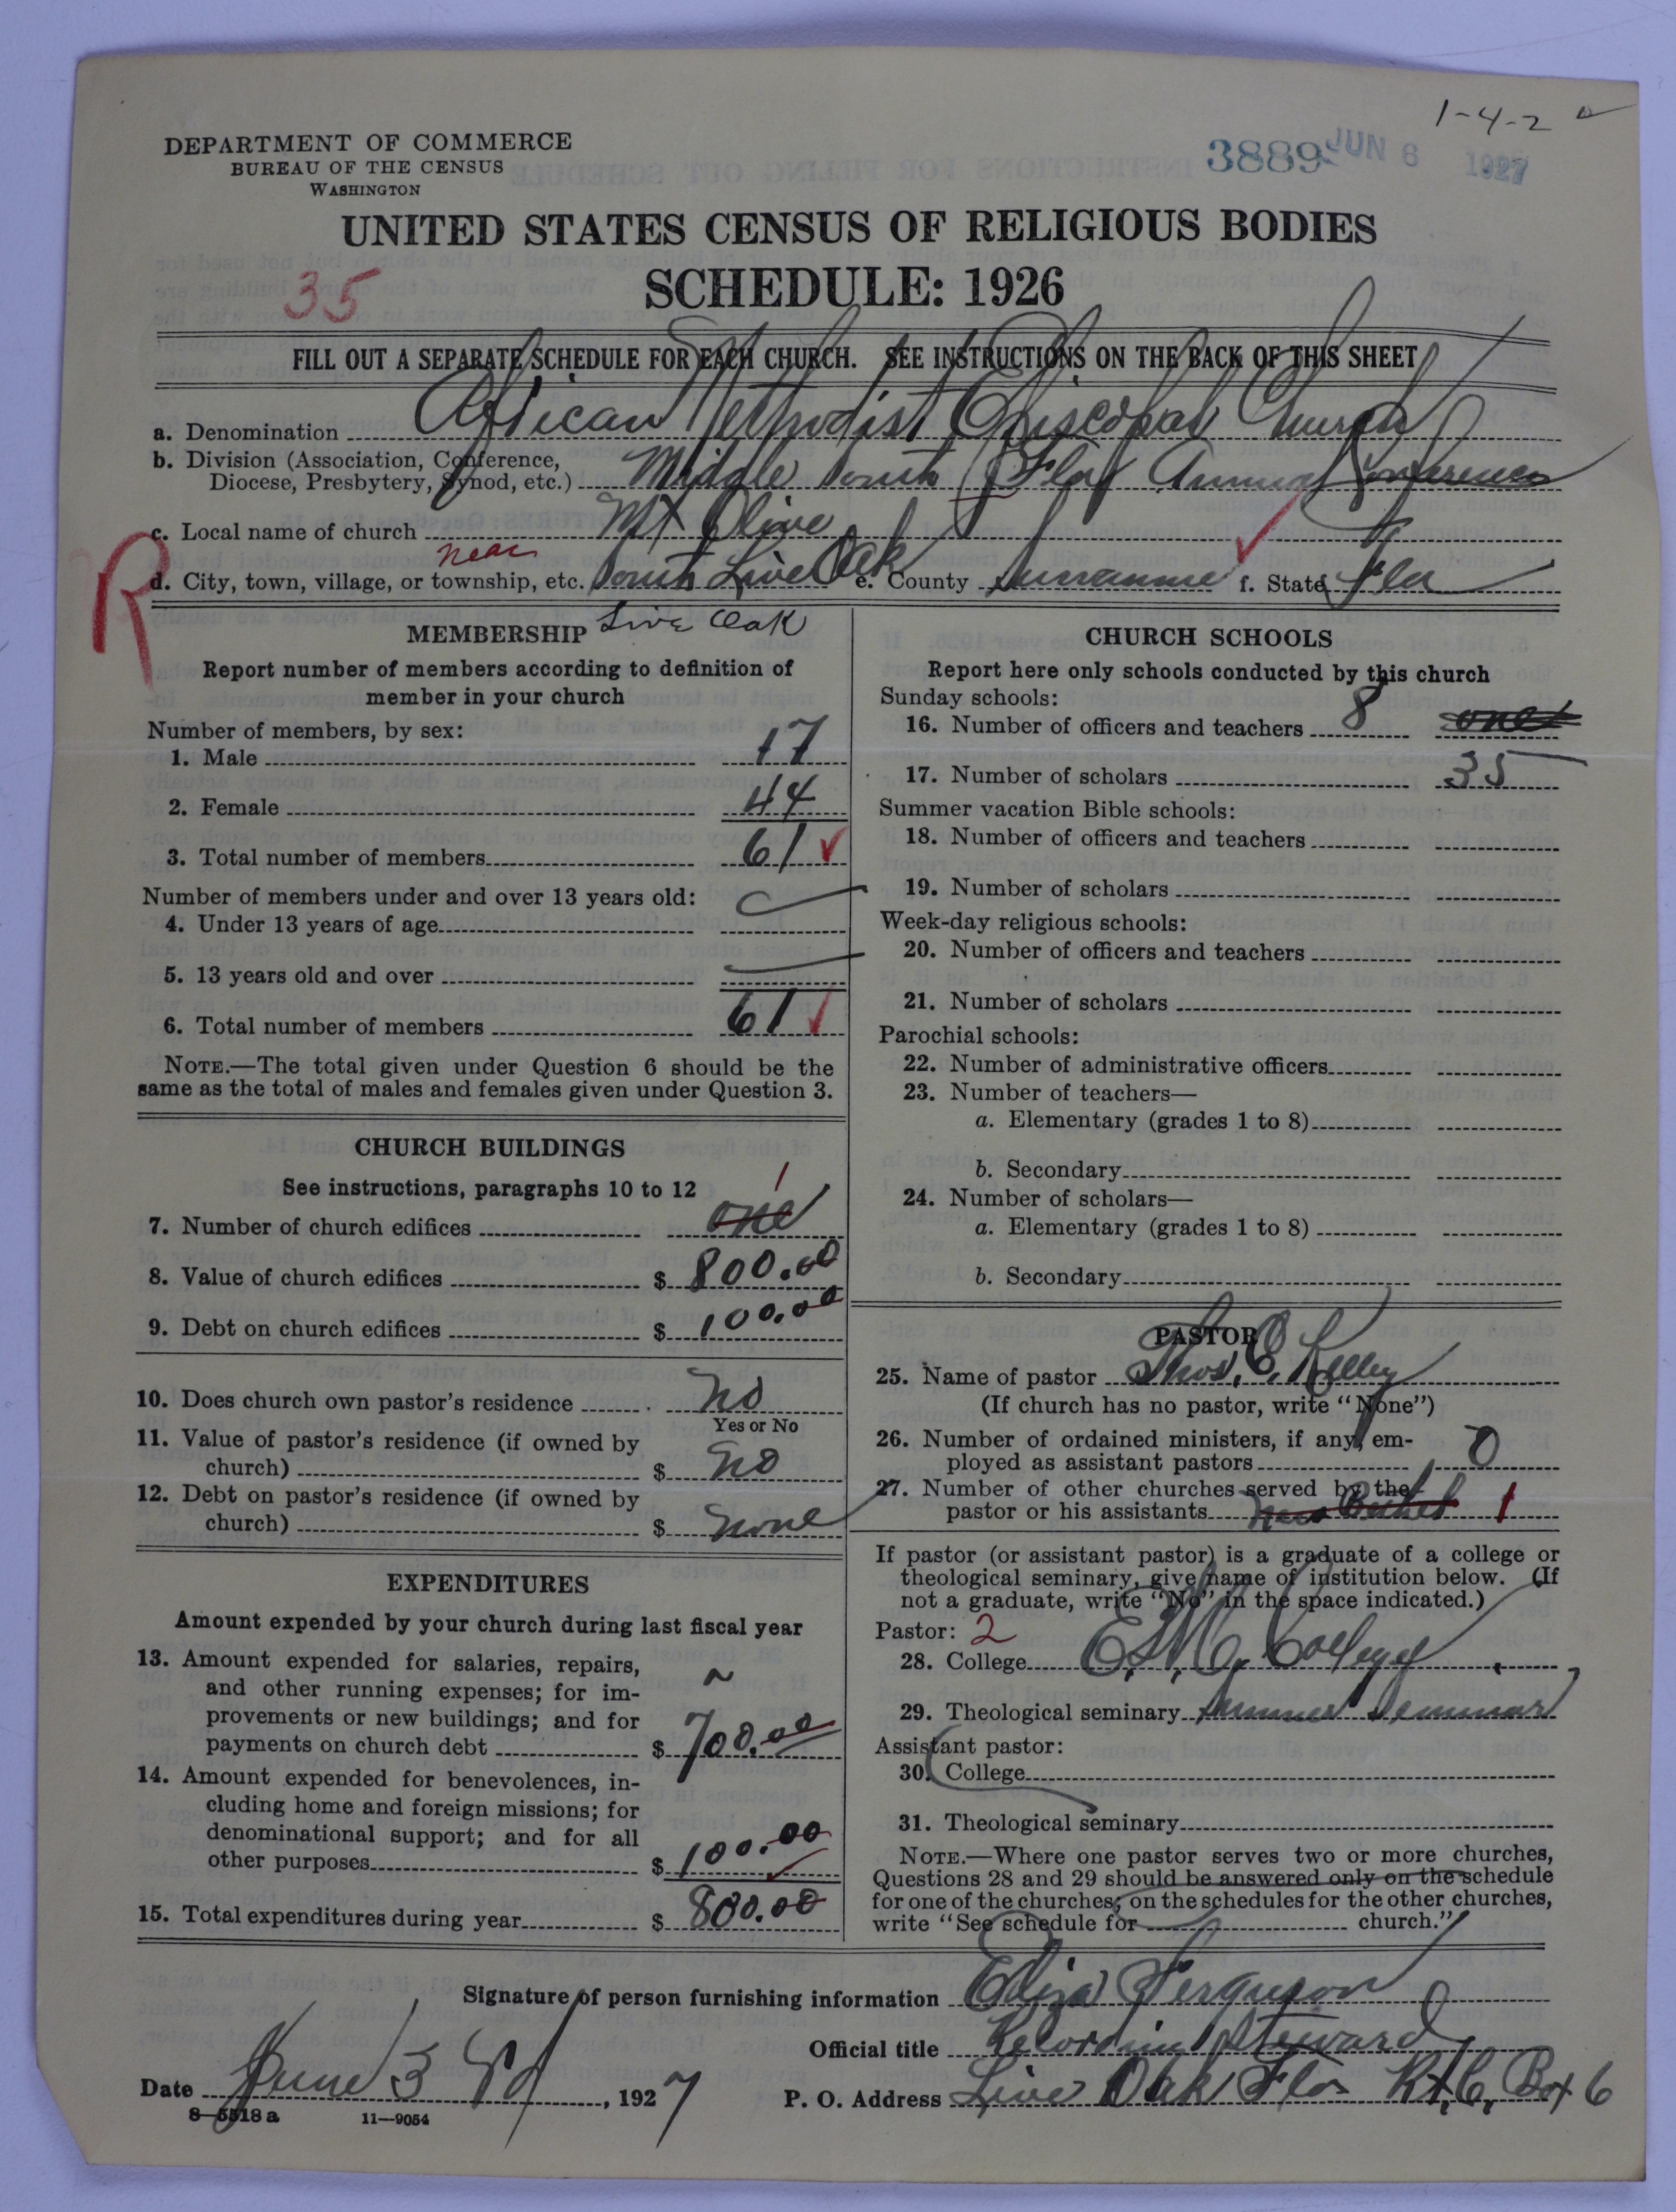 1-4-2
DEPARTMENT OF COMMERCE
BUREAU OF THE CENSUS
WASHINGTON
3889 JUN 6 1927
UNITED STATES CENSUS OF RELIGIOUS BODIES
35
SCHEDULE: 1926
FILL OUT A SEPARATE SCHEDULE FOR EACH CHURCH. SEE INSTRUCTIONS ON THE BACK OF THIS SHEET
a. Denomination African Methodist Episcopal Church
b. Division (Association, Conference,
Diocese, Presbytery, Synod, etc.) Middle South Fla Annual Conference
c. Local name of church Mt Olive
R
near
d. City, town, village, or township, etc. South Live Oak e. County Suwannee f. State Fla
Live Oak
MEMBERSHIP
Report number of members according to definition of
member in your church
Number of members, by sex:
1. Male 17
2. Female 44
3. Total number of members 61
Number of members under and over 13 years old:
4. Under 13 years of age
5. 13 years old and over
6. Total number of members 61
NOTE.—The total given under Question 6 should be the
same as the total of males and females given under Question 3.
CHURCH BUILDINGS
See instructions, paragraphs 10 to 12
1
7. Number of church edifices one
8. Value of church edifices $ 800.00
9. Debt on church edifices $ 100.00
10. Does church own pastor's residence No
Yes or No
11. Value of pastor's residence (if owned by
church) $ No
12. Debt on pastor's residence (if owned by
church) $ None
EXPENDITURES
Amount expended by your church during last fiscal year
13. Amount expended for salaries, repairs,
and other running expenses; for im-
provements or new buildings; and for
payments on church debt $ 700.00
14. Amount expended for benevolences, in-
cluding home and foreign missions; for
denominational support; and for all
other purposes $ 100.00
15. Total expenditures during year $ 800.00
CHURCH SCHOOLS
Report here only schools conducted by this church
Sunday schools:
16. Number of officers and teachers 8 one
17. Number of scholars 35
Summer vacation Bible schools:
18. Number of officers and teachers
19. Number of scholars
Week-day religious schools:
20. Number of officers and teachers
21. Number of scholars
Parochial schools:
22. Number of administrative officers
23. Number of teachers—
a. Elementary (grades 1 to 8)
b. Secondary
24. Number of scholars—
a. Elementary (grades 1 to 8)
b. Secondary
PASTOR
25. Name of pastor Thos. E. Kelley
(If church has no pastor, write "None")
26. Number of ordained ministers, if any, em-
ployed as assistant pastors 0
27. Number of other churches served by the
pastor or his assistants Bethel 1
If pastor (or assistant pastor) is a graduate of a college or
theological seminary, give name of institution below. (If
not a graduate, write "No" in the space indicated.)
Pastor: 2
28. College College
29. Theological seminary
Assistant pastor:
30. College
31. Theological seminary
NOTE.—Where one pastor serves two or more churches,
Questions 28 and 29 should be answered only on the schedule
for one of the churches; on the schedules for the other churches,
write "See schedule for church."
Signature of person furnishing information Eliza Ferguson
Official title Recording Steward
Date June 3rd, 1927 P. O. Address Live Oak Fla Rt. C, Box 6
8-5518 a 11—9054